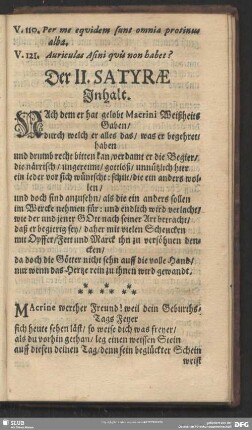 V. 110. Per me eqvidem sunt omnia protinus
alba.
V. 121. Auriculas Asini qvis non habet?
Der II. SATYRÆ
Inhalt.
NAch dem er hat gelobt Macrini Weißheits
Gaben/
durch welch er alles das/ was er begehret/
haben
und drumb recht bitten kan/ verdamt er die Begier/
die närrisch/ ungereimt/ gottloß/ unnützlich hier
ein ieder vor sich wünscht; schilt/ die ein anders wol-
len/
und doch sind anzusehn/ als die ein anders sollen
im Wercke nehmen für: und endlich wird verlacht/
wie der und jener GOtt nach seiner Art betracht/
daß er begierig sey/ daher mit vielen Schencken
mit Opffer/ Fett und Marck ihn zu versöhnen den-
cken/
da doch die Götter nicht sehn auff die volle Hand/
nur wenn das Hertze rein zu ihnen wird gewandt.
MAcrine werther Freund! weil dein Geburths-
Tags Feyer
sich heute sehen läst/ so weise dich was freyer/
als du vorhin gethan/ leg einen weissen Stein
auff diesen deinen Tag/ denn sein beglückter Schein
weist